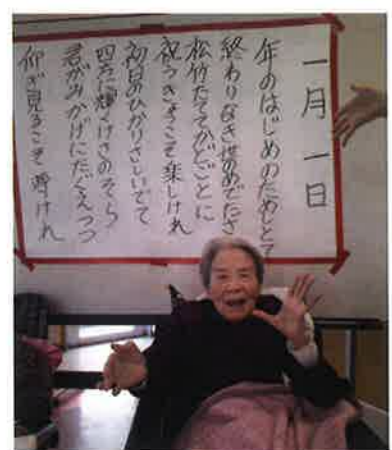 一月一日
年のはじめのためとて
終わりなき世のめでたさ
松竹たててかどごとに
祝うきょうこそ楽しけれ
初日のひかりさしいでて
四方に輝くけさのそら
君がみかげにたぐえつつ
仰ぎ見るこそ尊けれ